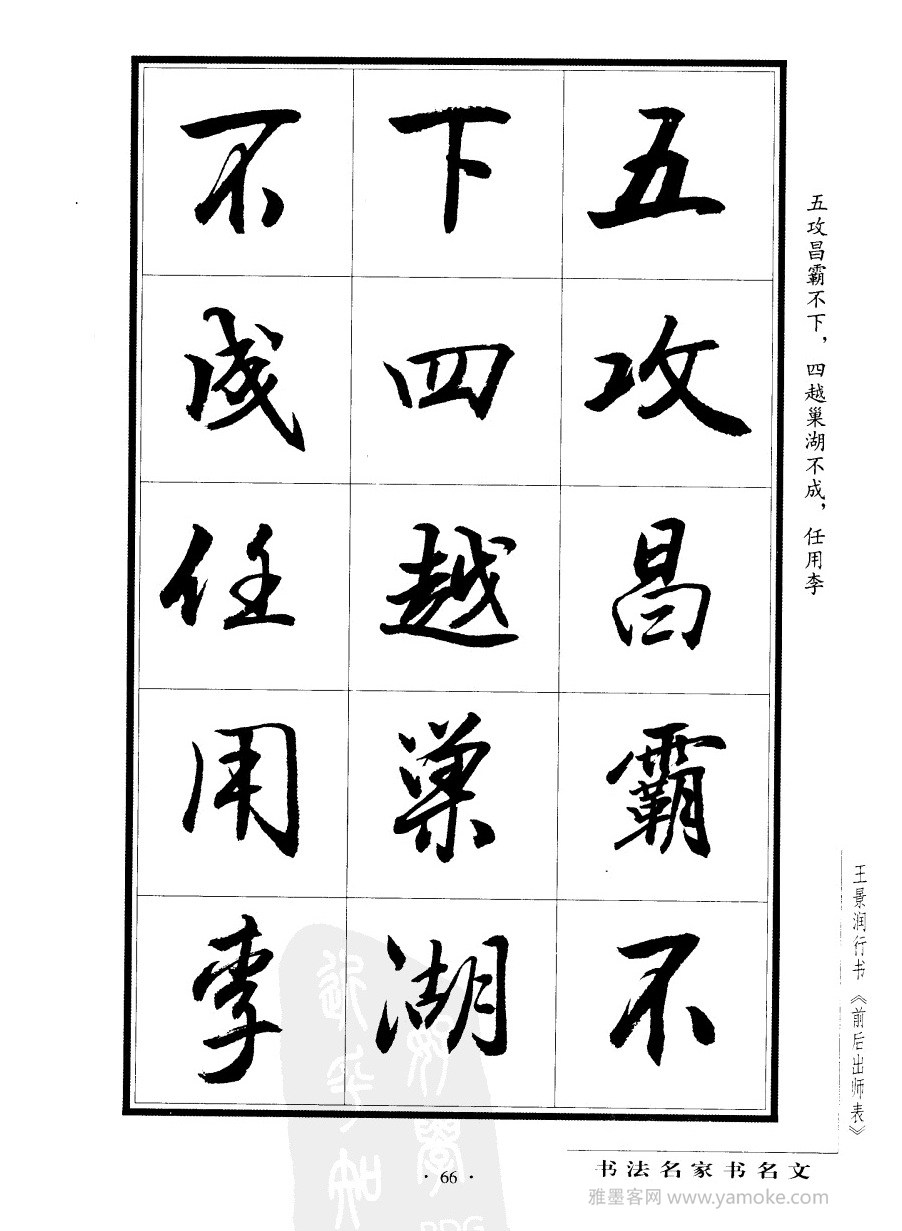 五攻昌霸不
下四越巢湖
不成任用李
五攻昌霸不下，四越巢湖不成，任用李
王景润行书《前后出师表》
书法名家书名文
· 66 ·
雅墨客网 www.yamoke.com